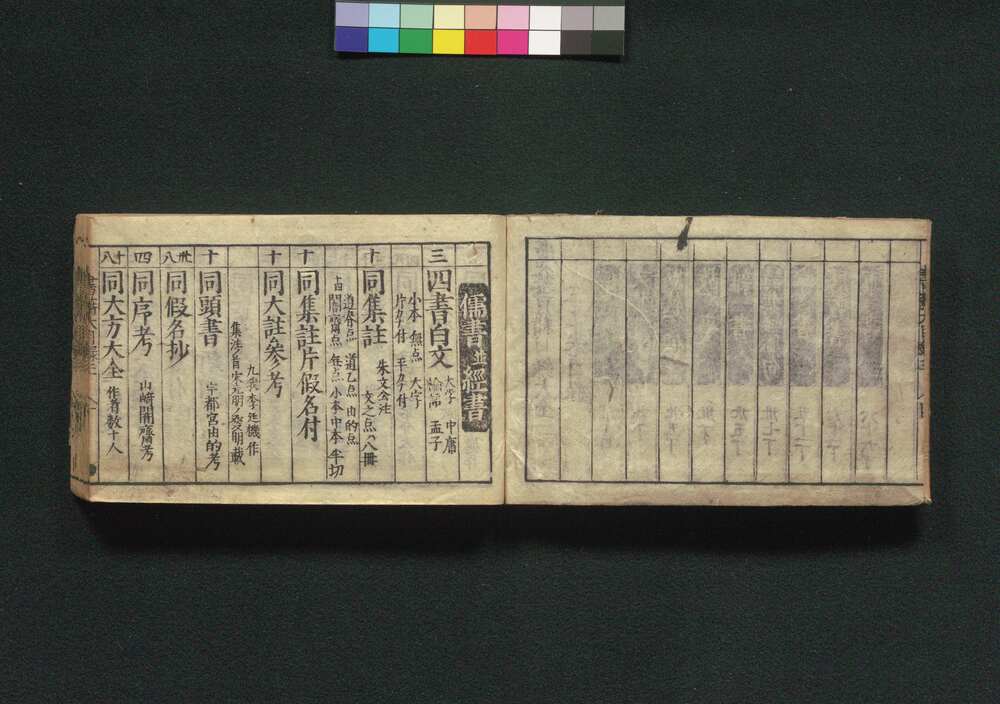 儒書並經書
三 四書白文 大字 中庸
論語 孟子
小本 無点 大字
片カナ付 平カナ付
十 同集註 朱文公注
文之点八冊
道春点 道乙点 由的点
十四 闇齋点 無点 小本中本半切
十 同集註片假名付
十 同大註參考
九峩李廷機作
十 同頭書 宇都宮由的考
卅八 同假名抄
四 同序考 山崎闇齋考
十八 同大方大全 作者数十人